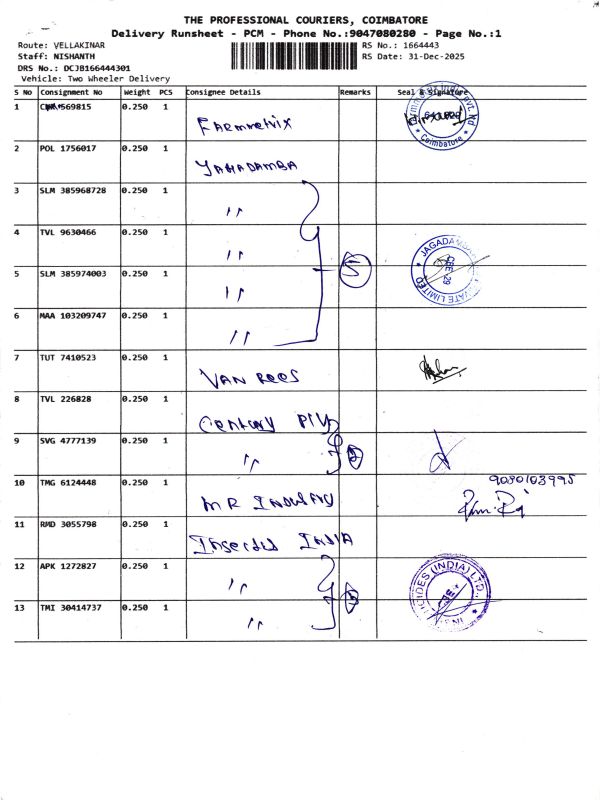 THE PROFESSIONAL COURIERS, COIMBATORE
Delivery Runsheet - PCM - Phone No.:9047080280 - Page No.:1
Route: VELLAKINAR
RS No.: 1664443
Staff: NISHANTH
RS Date: 31-Dec-2025
DRS No.: DCJB166444301
Vehicle: Two Wheeler Delivery
S No Consignment No Weight PCS Consignee Details Remarks Seal & Signature
1 569815 0.250 1 Coimbatore
2 POL 1756017 0.250 1 JAGADAMBA
3 SLM 385968728 0.250 1 〃
4 TVL 9630466 0.250 1 〃
5 SLM 385974003 0.250 1 〃 5 JAGADAMBA PRIVATE LIMITED
6 MAA 103209747 0.250 1 〃
7 TUT 7410523 0.250 1 VAN REES
8 TVL 226828 0.250 1 Century Ply
9 SVG 4777139 0.250 1 〃 2
10 TMG 6124448 0.250 1 MR 9030103995
11 RMD 3055798 0.250 1 INDIA
12 APK 1272827 0.250 1 〃 3 (INDIA) LTD.
13 TMI 30414737 0.250 1 〃